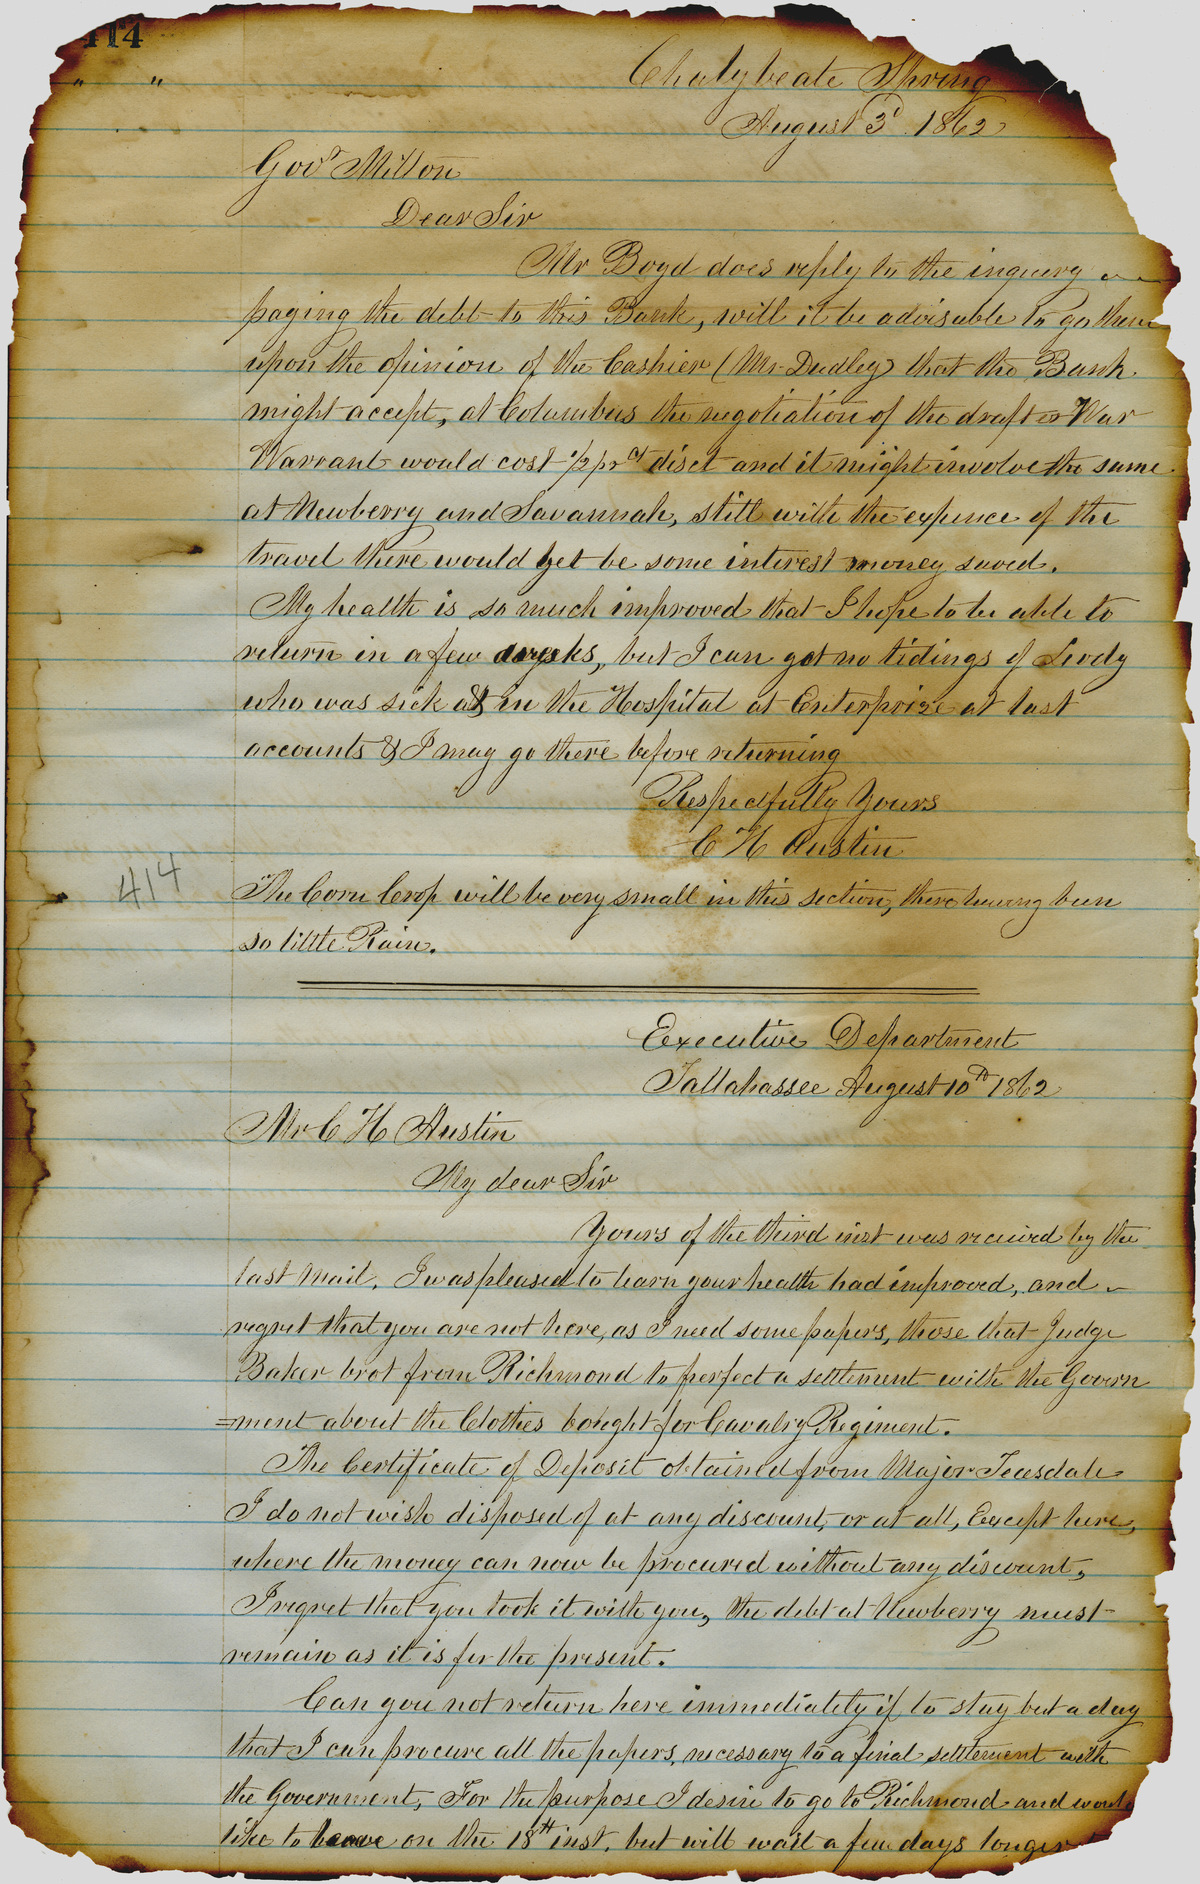 414
" "
Chalybeate Spring
August 3d 1862
Govr Milton
Dear Sir
Mr Boyd does reply to the inquery
paying the debt to this Bank, will it be advisable to go there
upon the opinion of the Cashier (Mr Dudley) that the Bank
might accept, at Columbus the negotiation of the draft or War
Warrant would cost 1/2 pr ct disct and it might involve the same
at Newberry and Savannah, still with the expence of the
travel there would yet be some interest money saved.
My health is so much improved that I hope to be able to
return in a few weeks, but I can get no tidings of
who was sick at in the Hospital at Enterprize at last
accounts & I may go there before returning
Respectfully Yours
C H Austin
414
The Corn Crop will be very small in this section, there having been
so little Rain.
Executive Department
Tallahassee August 10th 1862
Mr C H Austin
My dear Sir
Yours of the third inst was recieved by the
last Mail, I was pleased to learn your health had improved, and
regret that you are not here, as I need some papers, those that Judge
Baker brot from Richmond to perfect a settlement with the Govern
=ment about the Clothes bought for Cavalry Regiment.
The Certificate of Deposit obtained from Major Teasdale
I do not wish disposed of at any discount, or at all, Except here,
where the money can now be procured without any discount,
I regret that you took it with you, the debt at Newberry must
remain as it is for the present.
Can you not return here immediately if to stay but a day
that I can procure all the papers, necessary to a final settlement with
the Government, For the purpose I desire to go to Richmond and would
like to leave on the 18th inst. but will wait a few days longer